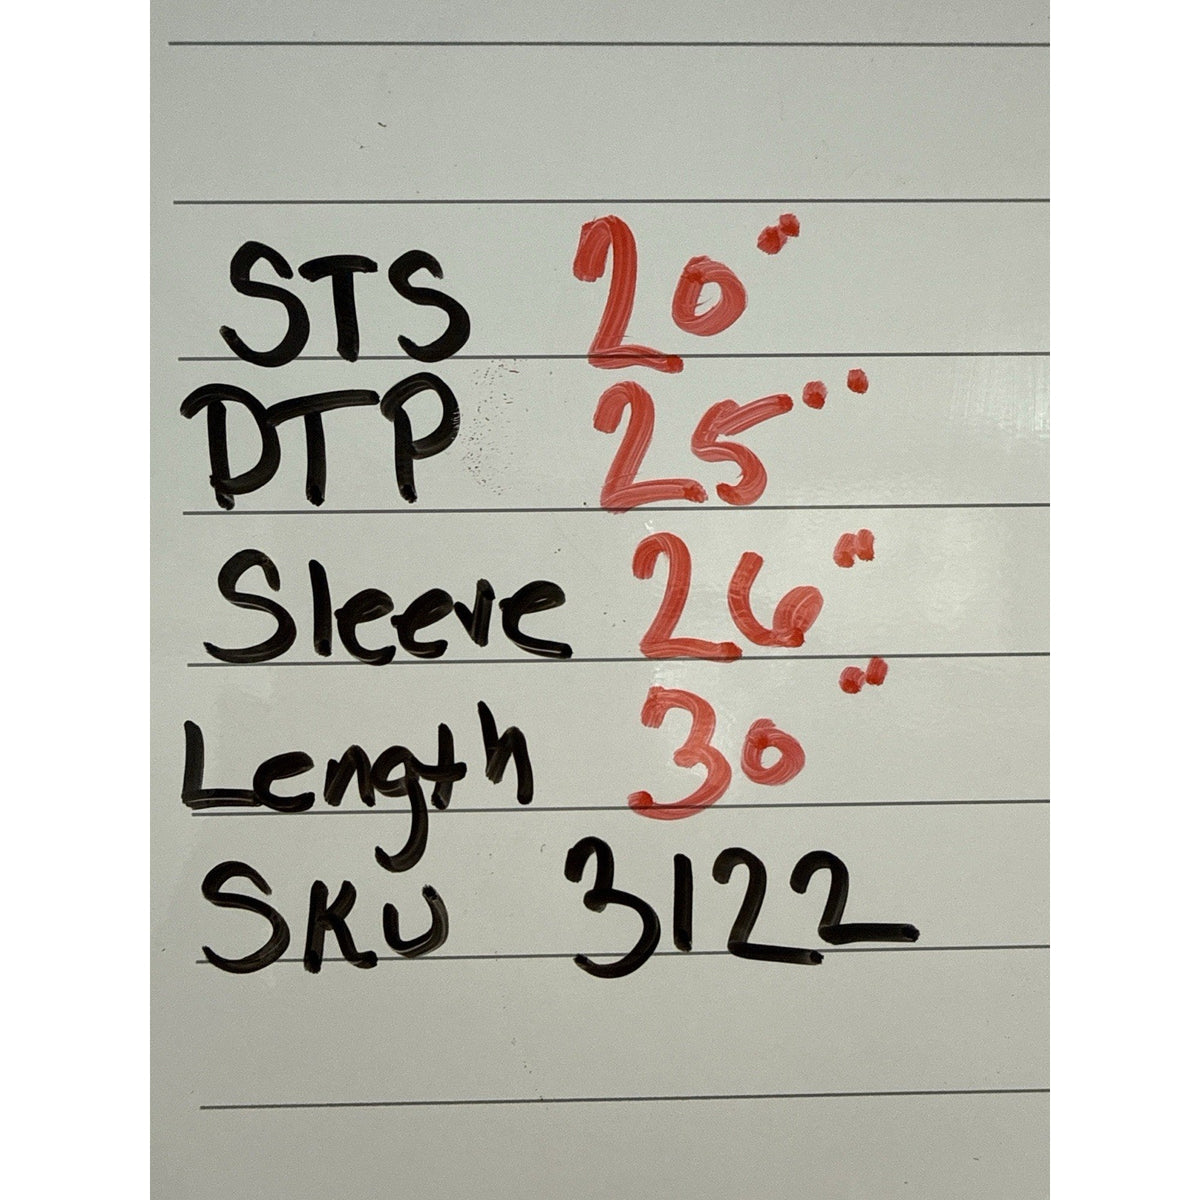 STS 20"
DTP 25"
Sleeve 26"
Length 30"
SKU 3122